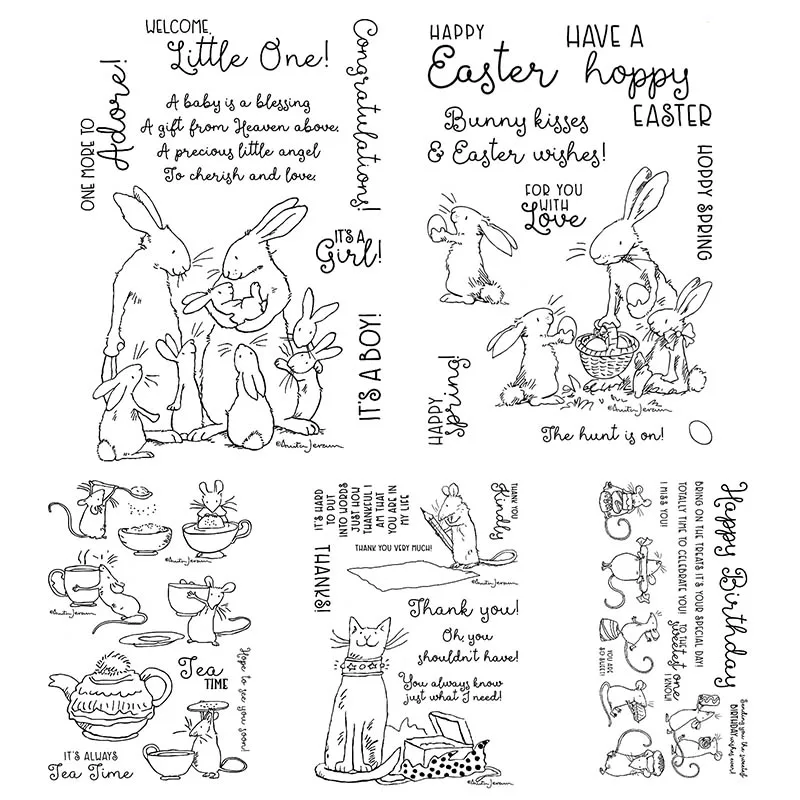 WELCOME,
Little One!
ONE MORE TO
Adore!
Congratulations!
A baby is a blessing
A gift from Heaven above.
A precious little angel
To cherish and love.
IT'S A
Girl!
IT'S A BOY!
©Anita Jeram
HAPPY
Easter
HAVE A
hoppy
EASTER
Bunny kisses
& Easter wishes!
FOR YOU
WITH
Love
HOPPY SPRING
HAPPY
Spring!
©Anita Jeram
The hunt is on!
©Anita Jeram
©Anita Jeram
Tea
TIME
Hope to see you soon!
IT'S ALWAYS
Tea Time
©Anita Jeram
IT'S HARD
TO PUT
INTO WORDS
JUST HOW
THANKFUL I
AM THAT
YOU ARE IN
MY LIFE
THANK YOU
Kindly
THANK YOU VERY MUCH!
©Anita Jeram
THANKS!
Thank you!
Oh, you
shouldn't have!
You always know
just what I need!
©Anita Jeram
Happy Birthday
BRING ON THE TREATS IT'S YOUR SPECIAL DAY!
TOTALLY TIME TO CELEBRATE YOU!
I MISS YOU!
TO THE
sweetest one
I KNOW!
YOU ARE
SO SWEET!
Sending you the sweetest
BIRTHDAY wishes ever!
©Anita Jeram